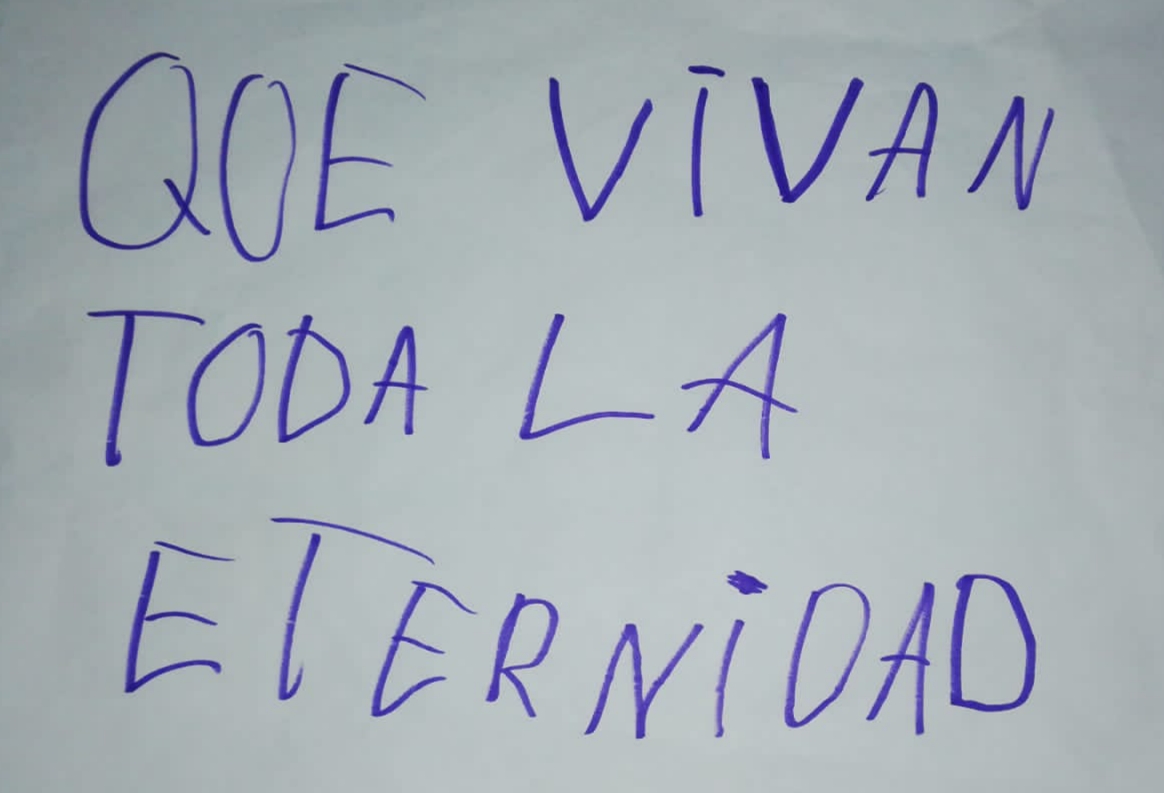 QOE VIVAN
TODA LA
ETERNIDAD